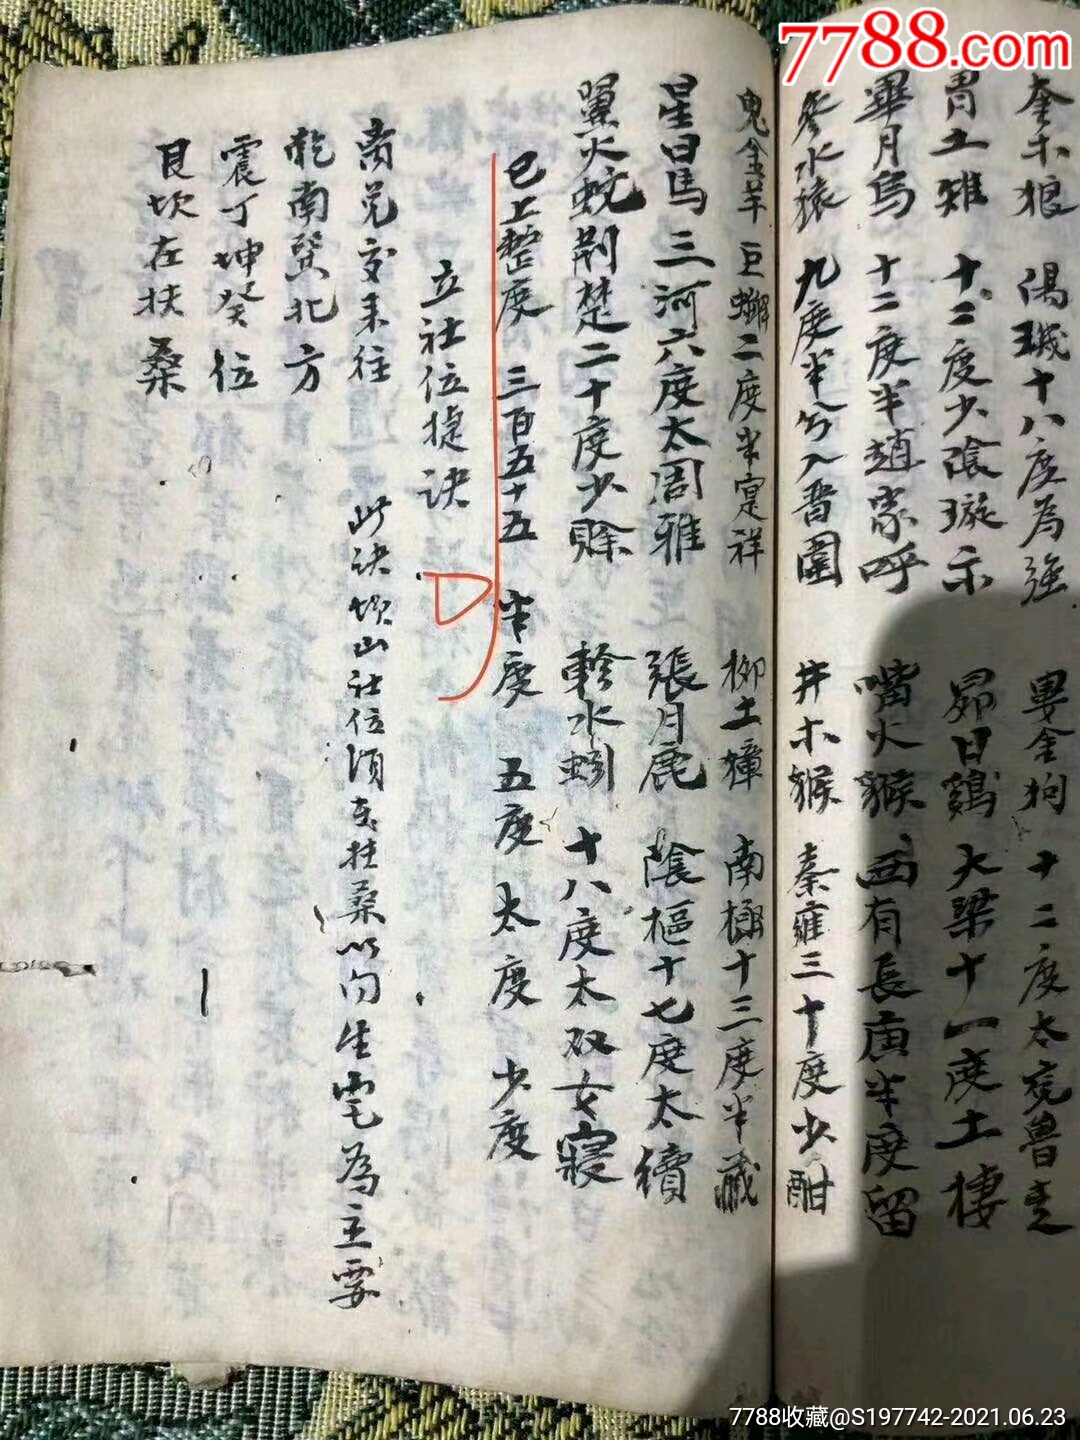 7788.com
奎木狼 陽璣十八度為強 婁金狗 十二度太兗魯走
胃土雉 十二度少陰璇示 昴日鷄 大梁十一度土棲
畢月烏 十二度半趙家呼 嘴火猴 西有長庚半度留
參水猿 九度半分入晋圖 井木猴 秦雍三十度少酣
鬼金羊 巨蠏二度半寔祥 柳土獐 南極十三度半藏
星日馬 三河六度太周雅 張月鹿 陰樞十七度太續
翼火蛟 荊楚二十度少賖 軫水蚓 十八度太双女寢
巳上整度 三百五十五 半度 五度 太度 少度
立社位捷訣
离兌交来往
乾南巽北方
震丁坤癸位
艮坎在扶桑
此訣坎山社位須在扶桑以向生宅為主要
7788收藏@S197742-2021.06.23